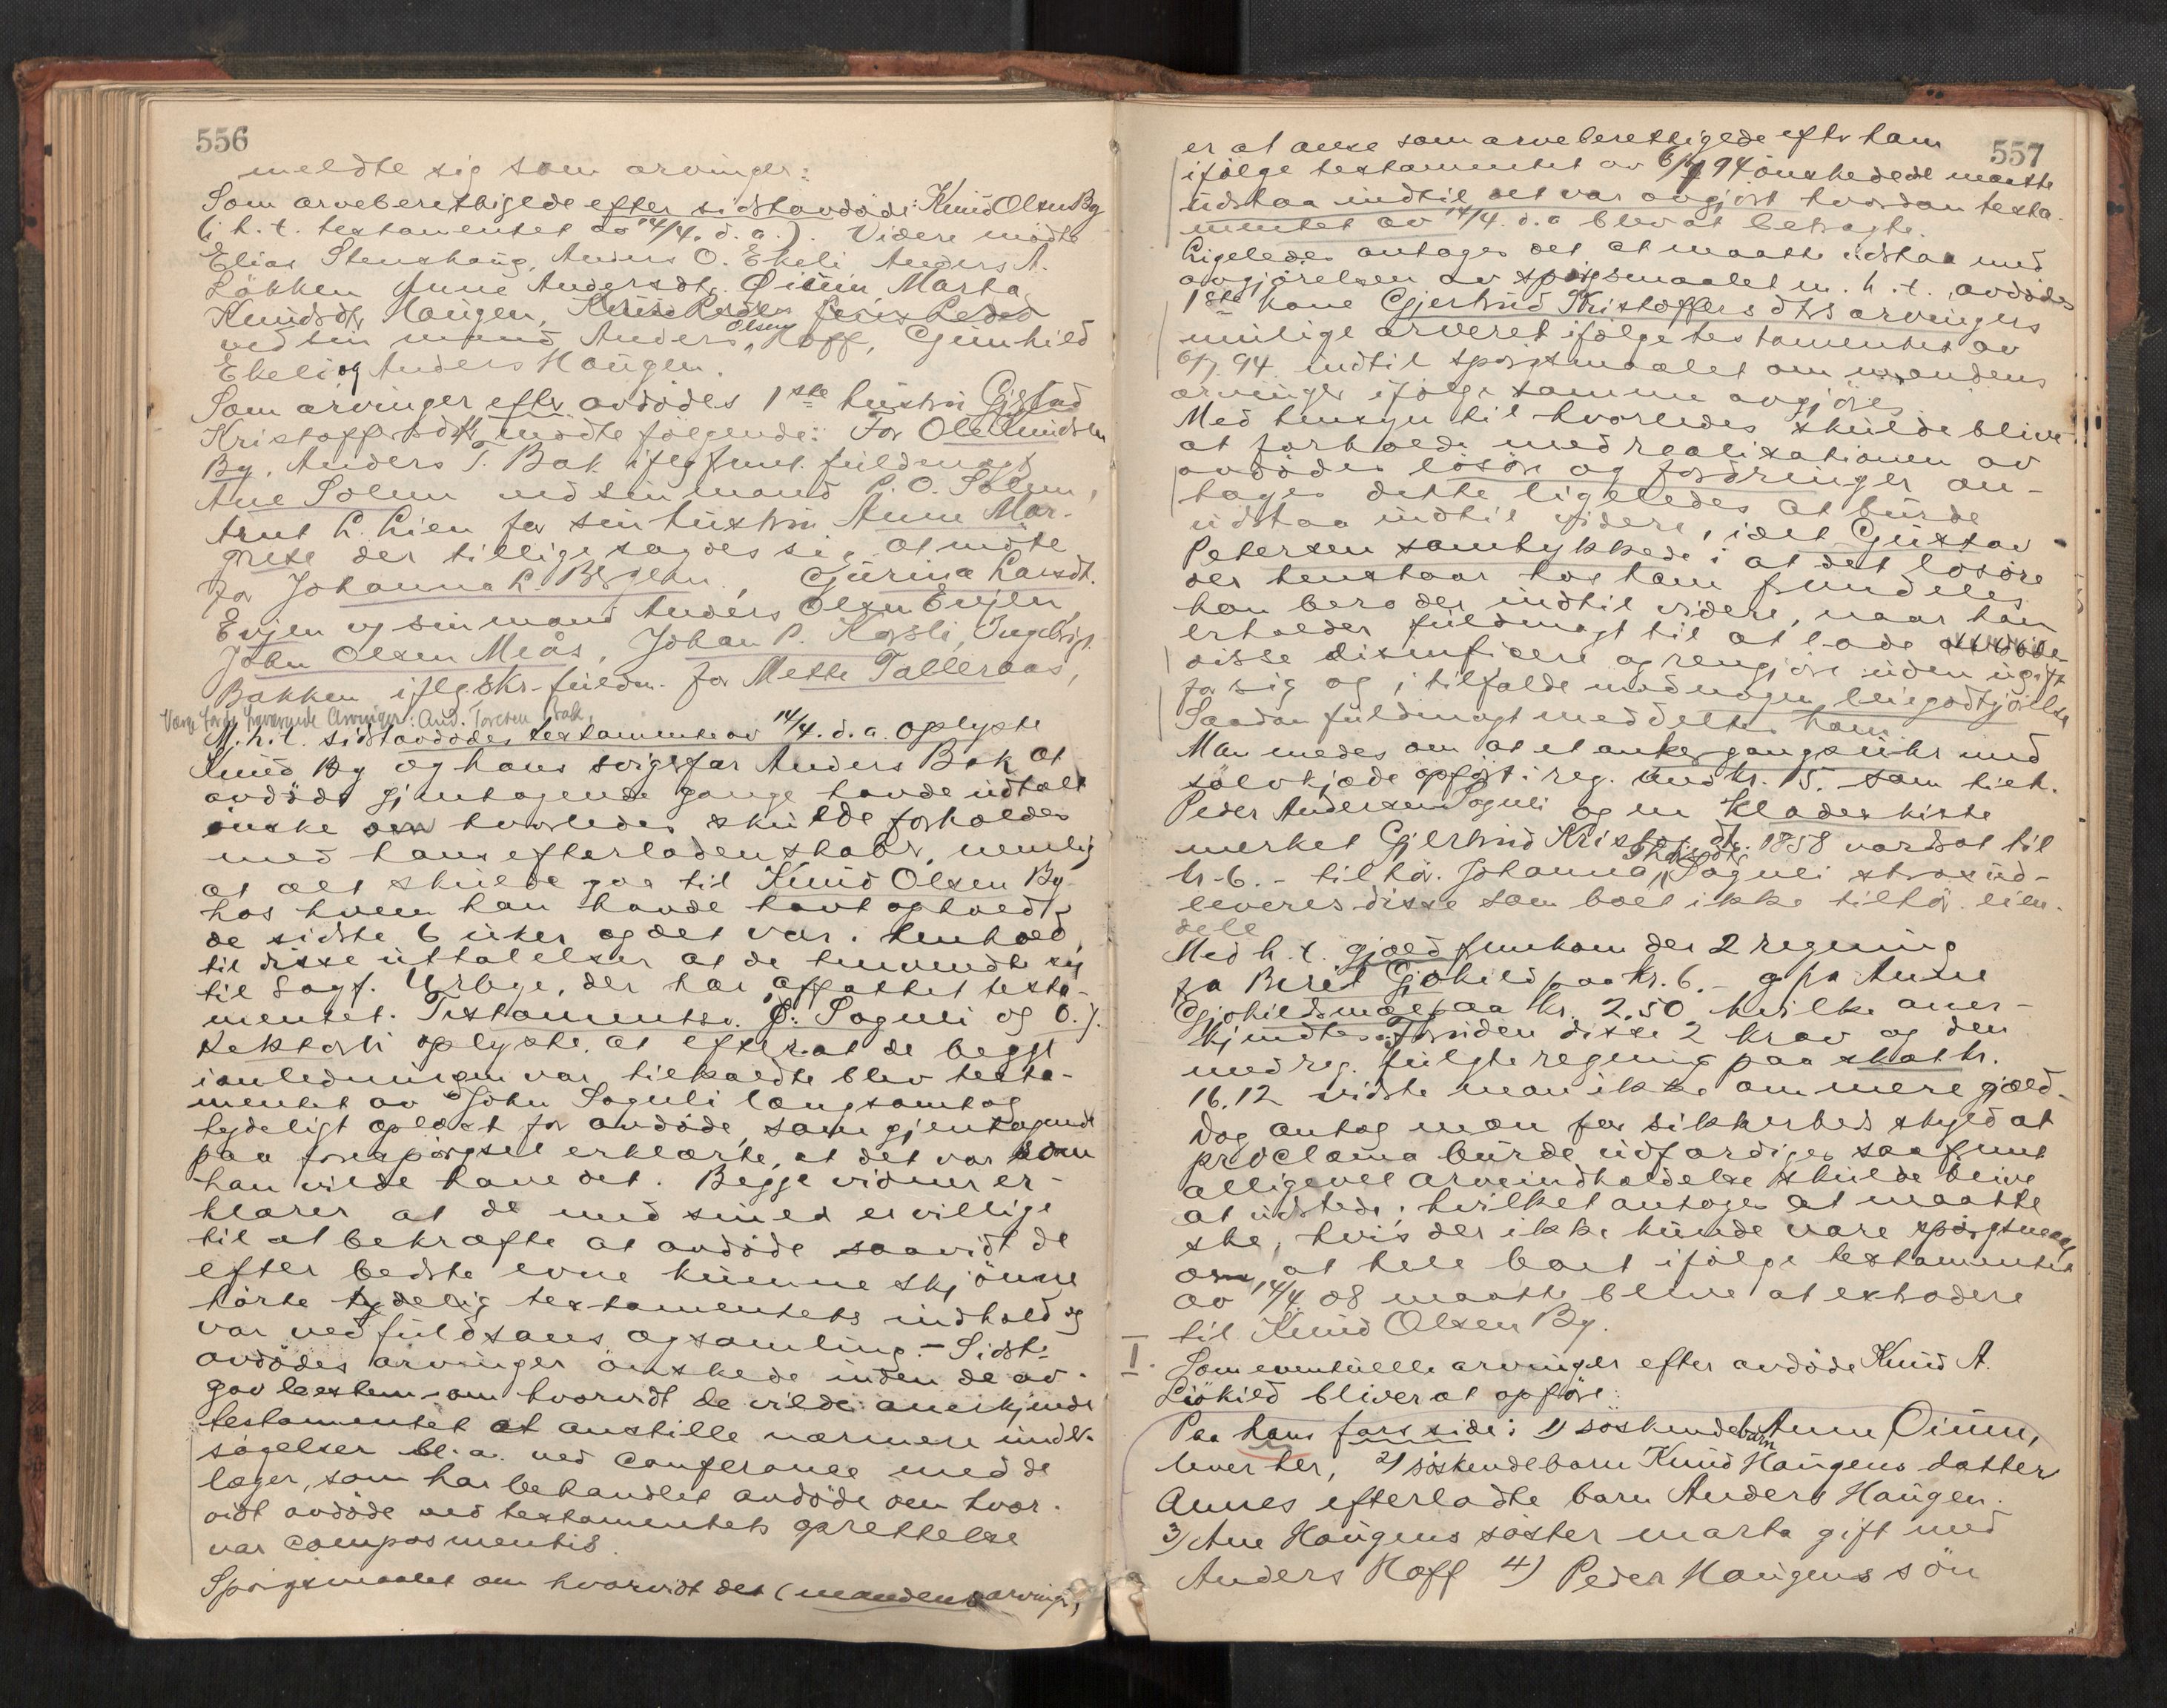 556
meldte sig som arvinger:
Som arveberettigede efter sidstavdöde: Knud Olsen By
(i h. t. testamentet av 14/4. d. a.). Videre mödte
Elias Stenshaug, Anders O. Ekeli Anders A.
Lökken Anne Andersdtr. Öiium, Marta
Knudsdtr Haugen,
ved sin mand Anders Olsen Hoff, Gunhild
Ekeli og Anders Haugen.
Som arvinger efter avdödes 1ste hustru Gjertrud
Kristoffersdtr mödte fölgende: For Ole Knudsen
By, Anders T. Bak iflg fremt. fuldmagt
Ane Solem ved sin mand P. O. Solem,
Arnt L. Lien for sin hustru Anne Mar-
grete der tillige sagdes sig at möte
for Johanna L. Bergehn, Gjürina Larsdt.
Evjen og sin mand Anders Olsen Evjen,
John Olsen Meås, Johan P. Kosli, Ingebrigt
Bakken iflg. skr. fuldm. for Mette Talleraas,
Verge for de fraværende Arvinger: And. Torsten Bak.
M. h. t. sidstavdödes testamente av 14/4. d. a. oplyste
Knud By og hans svigerfar Anders Bak at
avdöde gjentagende gange havde udtalt
önske om hvorledes skulde forholdes
med hans efterladenskaber, nemlig
at alt skulde gaa til Knud Olsen By
hos hvem han havde havt ophold
de sidste 6 uker og det var i henhold
til disse uttalelser at de henvendte sig
til Sagf. Wrbye, der har affattet testa-
mentet. Testamentsv. J: Soguli og O. J.
Rekstali oplyste, at efterat de begge
i anledningen var tilkaldte blev testa-
mentet av John Soguli langsomt og
tydeligt oplæst for avdöde, som gjentagende
paa forespörgsel erklærte, at det var som
han vilde have det. Begge vidner er-
klærer at de med sin ed er villige
til at bekræfte at avdöde saavidt de
efter bedste evne kunne skjönne
hörte tydelig testamentets indhold og
var ved fuld sans og samling. - Sidst-
avdödes arvinger önskede inden de av-
gav bestem. om hvorvidt de vilde anerkjende
testamentet at anstille nærmere undr-
sögelser bl. a. ved conferanse med de
læger, som har behandlet avdöde om hvor-
vidt avdöde ved testamentets oprettelse
var compos mentis.
Spörgsmaalet om hvorvidt det (mandens arvinger)
557
er at anse som arveberettigede efter ham
ifölge testamentet av 6/7 94 önskedede maatte
udstaa indtil det var avgjort hvordan testa-
mentet av 14/4. d. a blev at betragte.
Ligeledes antages det at maatte udstaa med
avgjörelsen av spörgsmaalet m. h. t. avdödes
1ste kone Gjertrud Kristoffersdtrs arvingers
mulige arveret ifölge testamentet av
6/7. 94. indtil spörgsmaalet om mandens
arvinger ifölge samme avgjöres
Med hensyn til hvorledes skulde blive
at forholde med realisationen av
avdödes lösöre og fordringer an-
tages dette ligeledes at burde
udstaa indtil videre, idet Gustav
Petersen samtykkede i at det lösöre
der henstaar hos ham fremdeles
kan bero der indtil videre, naar han
erholder fuldmagt til at lade
disse disinficere og rengjöre uden ugift
for sig og i tilfælde mod nogen leiegodtgjörelse
Saadan fuldmagt meddeltes ham.
Man enedes om at et anker gangs uhr med
sölvkjede opfört i reg. under kr. 15. som tilh.
Peder Andersen Soguli og en klædeskiste
merket Gjertrud Kristofdtr. 1858 vurdert til
kr. 6. - tilhör. Johanna Thorsdtr Soguli straxud-
leveres disse som boet ikke tilhör. eien-
dele
Med h. t. gjæld fremkom der 2 regning
fra Beret Gjökild paa kr. 6. - og fra Anne
Gjökildsmæl paa kr. 2.50 hvilke aner-
kjendtes. Foruden disse 2 krav og den
med reg. fulgte regning paa skat kr.
16.12 vidste man ikke om mere gjæld.
Dog antog man for sikkerheds skyld at
proclama burde udfærdiges saafremt
alligevel arveindkaldelse skulde blive
at udstede, hvilket antages at maatte
ske, hvis der ikke kunde være spörgsmaal
om at hele boet ifölge testamentet
av 14/4. 08 maatte blive at extradere
til Knud Olsen By.
II. Som eventuelle arvinger efter avdöde Knud A.
Liökild bliver at opföre:
Paa hans fars side: 1) söskendebarn Anne Öiium,
lever her, 2) söskendebarn Knud Haugens datter
Annes efterladte barn Anders Haugen.
3) Ane Haugens söster marta gift med
Anders Hoff 4) Peder Haugens sön